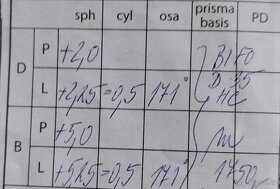 sph cyl osa prisma basis PD
D P +2,0
L +2,25 =0,5 171°
B P +5,0
L +5,25 =0,5 171°